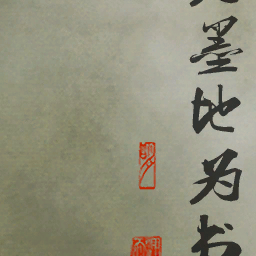 墨地为书